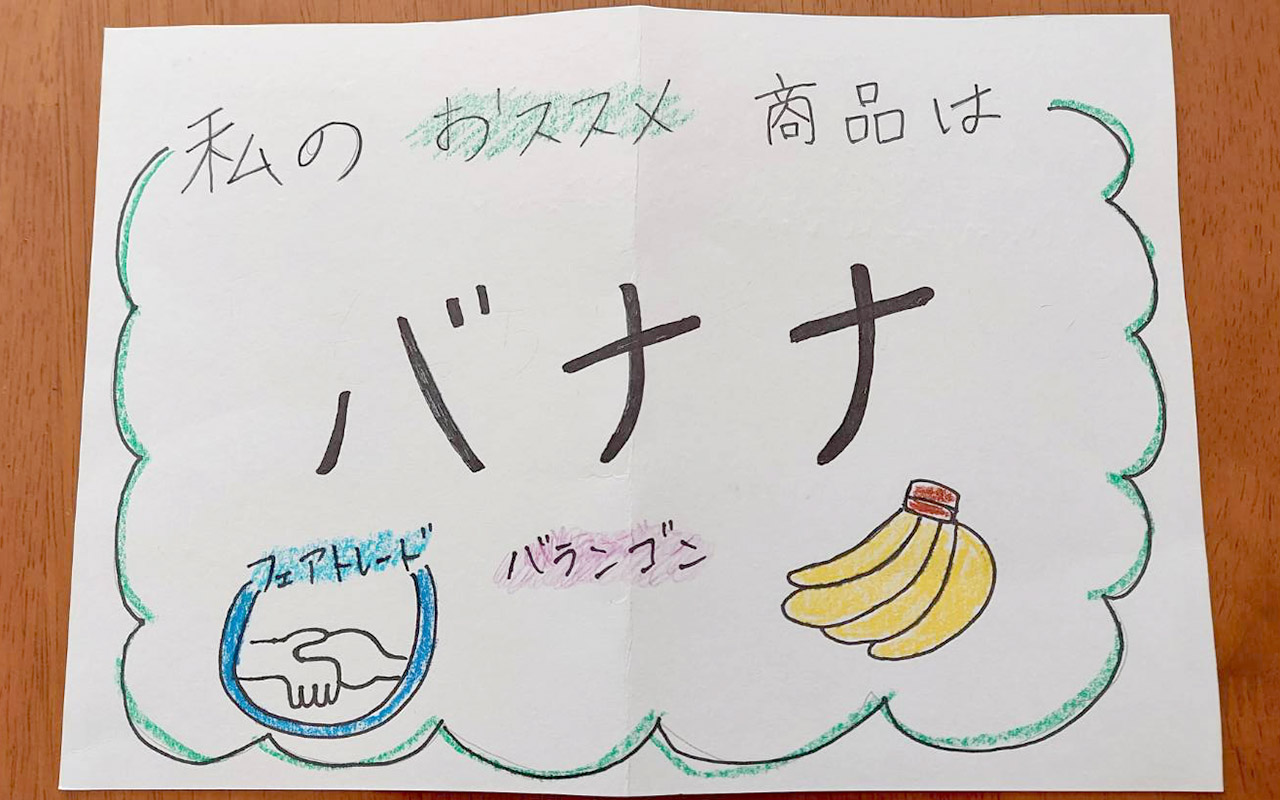 私の おススメ 商品は
バナナ
フェアトレード
バランゴン